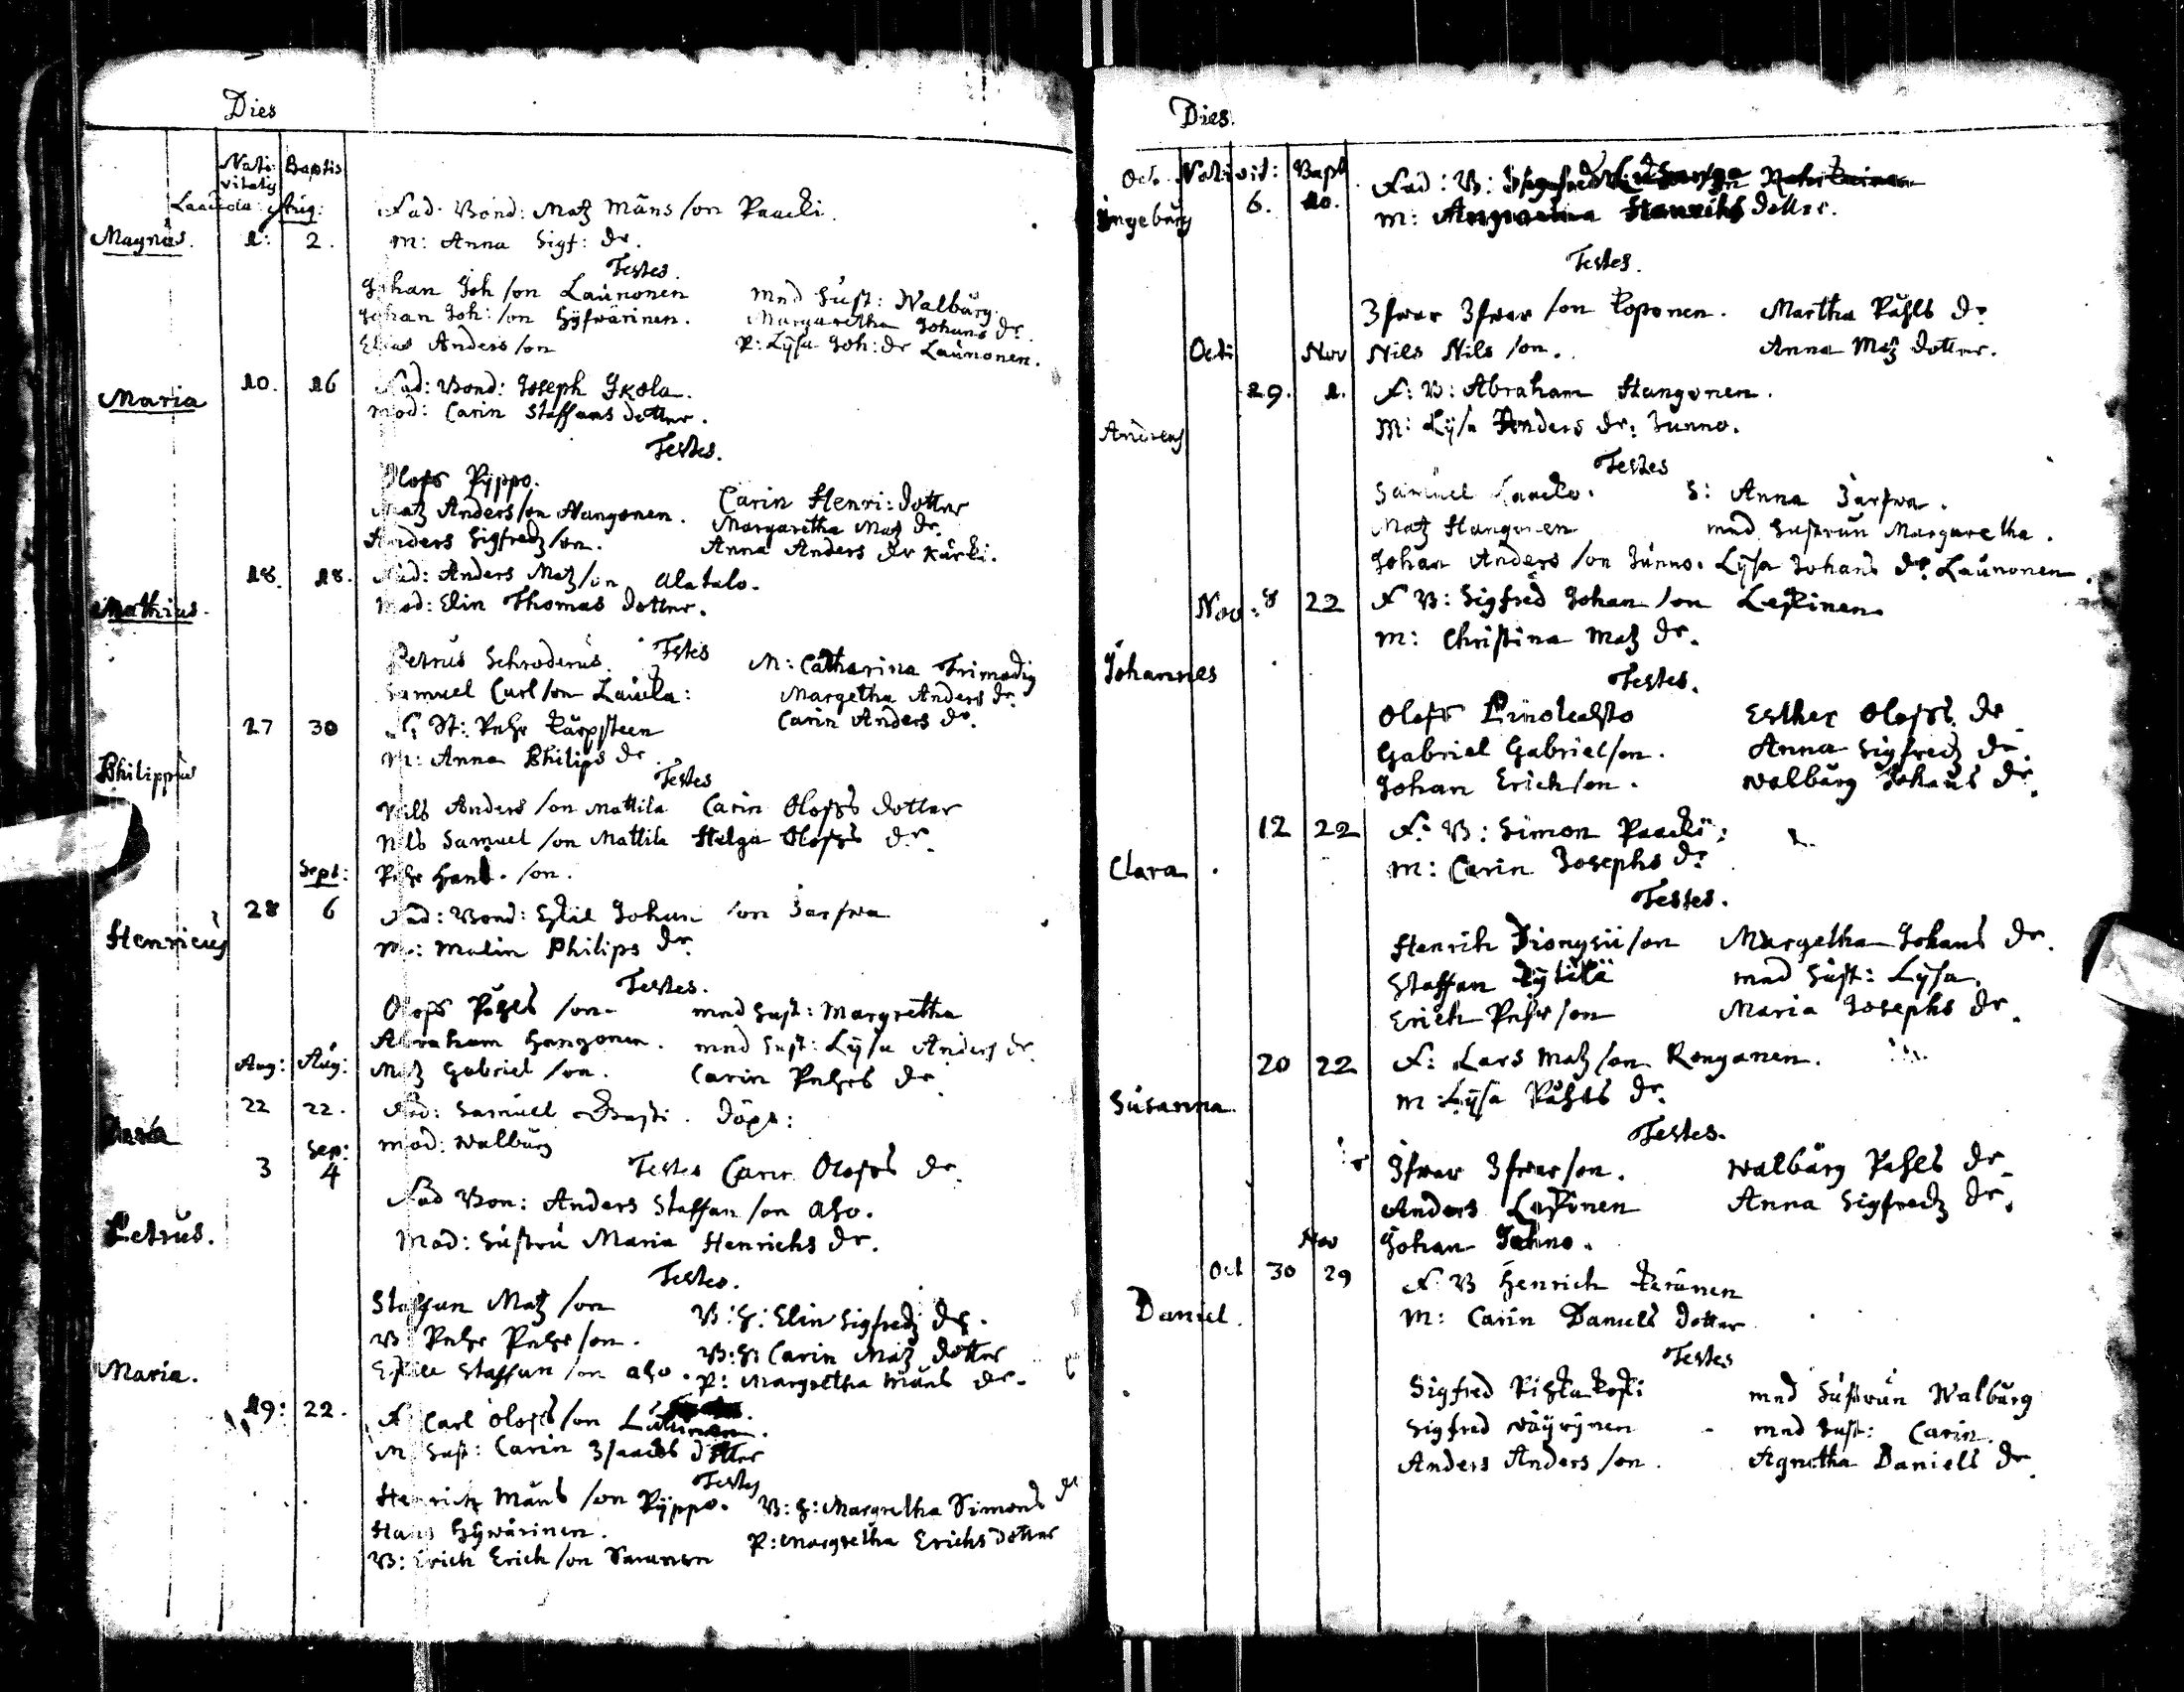 Dies
Nati Baptis
vitatis
Laukola: Aug:
Fad. Bond: Matz Måns son Paacki.
Magnus. 1: 2. M: Anna Sigf: dr.
Testes.
Johan Joh son Launonen mnd Hust: Walburg.
Johan Joh: son Hyfwärinen. Margaretha Johans dr.
Elias Anders son P: Lysa Joh: dr Launonen.
Maria 10. 16 Fad: Bond: Joseph Ikola.
mod: Carin Staffans dotter.
Testes.
Olofs Pyppo. Carin Henri: dotter
Matz Anders son Hangonen. Margaretha Matz dr.
Anders Sigfredz son. Anna Anders dr Kärki.
18. 18. Fad: Anders Matz son Alatalo.
Mathius. Mod: Elin Thomas dotter.
Testes
Petrus Schroderus. M: Catharina Frimodig
Samuel Carl son Laukla: Margetha Anders dr.
Carin Anders dr.
27 30 F: St: Pehr Karpsteen
Philippus M: Anna Philips dr.
Testes
Nils Anders son Mattila Carin Olofss dotter
Nils Samuel son Mattila Helga Olofss dr.
Sept: Pehr Hans. son.
28 6 Fad: Bond: Eskil Johan son Jarfwa
Henricus Mo: Malin Philips dr.
Testes.
Olofs Påhls son mnd Hust: Margretha
Abraham Hangonen. mnd Hust: Lysa Anders dr.
Aug: Aug: Matz Gabriel son. Carin Pehrs dr.
22 22. Fad: Samuel döpt:
mod: Walburg
Sep: Testes Carin Olofss dr.
3 4 Fad Bon: Anders Staffan son Aho.
Petrus. Mod: Hustru Maria Henrichs dr.
Testes.
Staffan Matz son B: H: Elin Sigfredz dr.
B: Pehr Pehrs son. B: H: Carin Matz dotter
Maria. Eskill Staffan son Aho. P: Margretha Måns dr.
19: 22. F. Carl Olofss son
M Hust: Carin Isaacks dotter
Testes
Henrich Måns son Pyppo. B: H: Margretha Simons dr
Hans Hywärinen. P: Margretha Erichs dotter
B: Erich Erich son Saranen
Dies.
Oct. Nativit: Bapt
Ingeburg 6. 10. Fad: B:
M: Henrichs dotter.
Testes.
Ifwar Ifwar son Koponen. Martha Påhls dr
Octi Nov Nils Nils son. Anna Matz dotter.
29. 1. F: B: Abraham Hangonen.
Andreas M: Lysa Anders dr: Junno.
Testes
Samuel Laacko. H: Anna Jarfwa.
Matz Hangonen mnd Hustrun Margaretha.
Johan Anders son Junno. Lysa Johans dr. Launonen.
Nov: 8 22 F B: Sigfred Johan son Leskinen.
M: Christina Matz dr.
Johannes
Testes.
Olofs Esther Olofss dr
Gabriel Gabriel son. Anna Sigfredz dr.
Johan Erich son. Walburg Johans dr.
12 22 F: B: Simon Paacki:
Clara M: Carin Josephs dr
Testes.
Henrik Dionysii son Margetha Johans dr.
Staffan mnd Hust: Lysa.
Erich Pehr son Maria Josephs dr.
20 22 F: Lars Matz son Ronganen.
Susanna M: Lysa Påhls dr.
Testes.
Ifwar Ifwar son. Walburg Pahls dr.
Anders Leskinen Anna Sigfredz dr.
Nov Johan
Oct 30 29 F. B Henrich Keränen
Daniel. M: Carin Daniels dotter
Testes
Sigfred mnd Hustrun Walburg
Sigfred Wäyrynen mnd Hust: Carin.
Anders Anders son. Agnetha Daniels dr